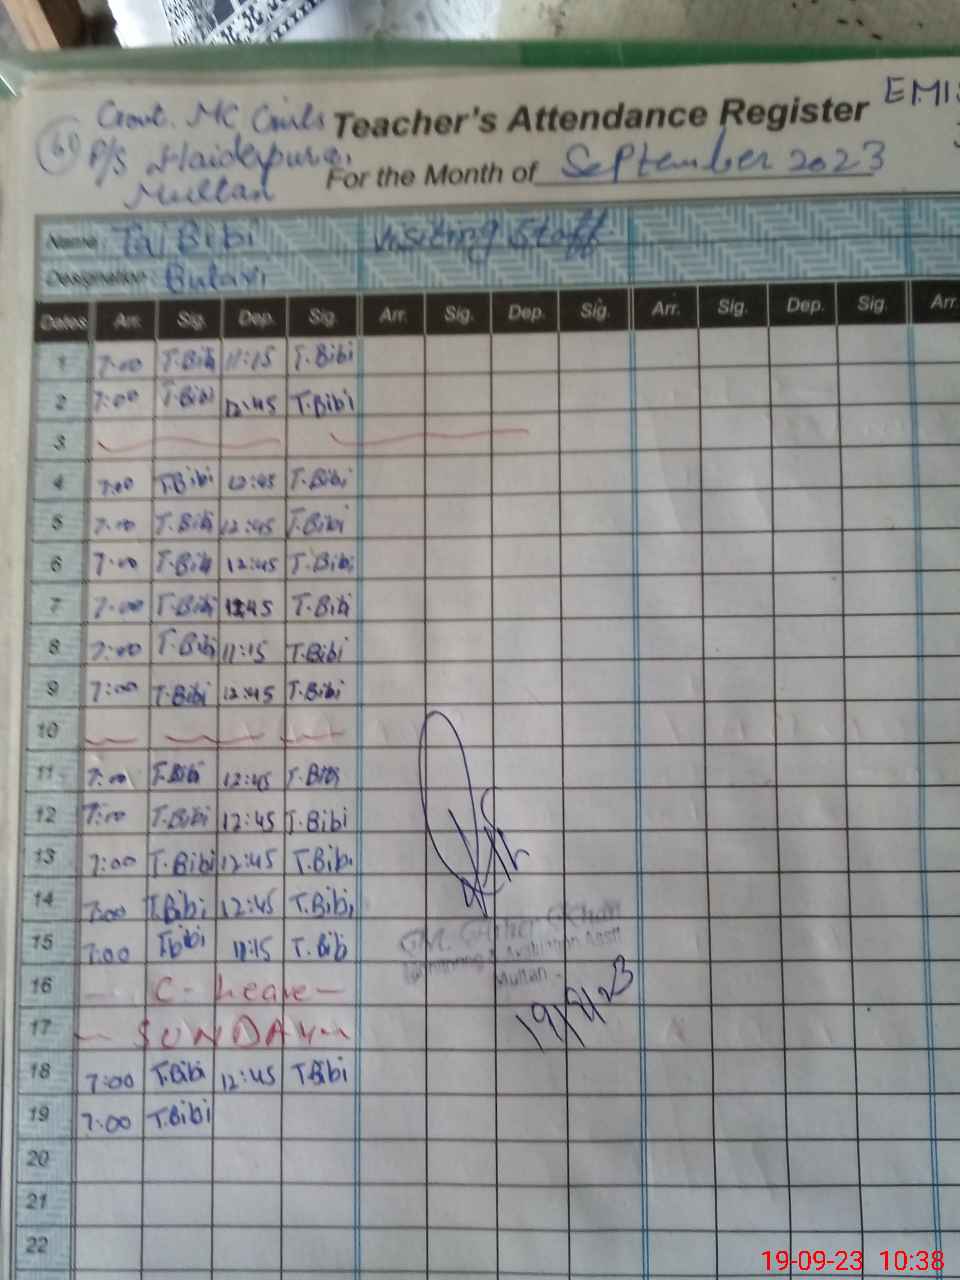 Govt. MC Girls Teacher's Attendance Register EMIS
P/S Haiderpura,
Multan For the Month of September 2023
Name Taj Bibi Visiting Staff
Designation Bulavi
Dates Arr. Sig. Dep. Sig. Arr. Sig. Dep. Sig. Arr. Sig. Dep. Sig. Arr.
1 7:00 T.Bibi 11:15 T.Bibi
2 7:00 T.Bibi 12:45 T.Bibi
3
4 7:00 T.Bibi 12:45 T.Bibi
5 7:00 T.Bibi 12:45 T.Bibi
6 7:00 T.Bibi 12:45 T.Bibi
7 7:00 T.Bibi 12:45 T.Bibi
8 7:00 T.Bibi 11:15 T.Bibi
9 7:00 T.Bibi 12:45 T.Bibi
10
11 7:00 T.Bibi 12:45 T.Bibi
12 7:00 T.Bibi 12:45 T.Bibi
13 7:00 T.Bibi 12:45 T.Bibi
14 7:00 T.Bibi 12:45 T.Bibi
15 7:00 T.Bibi 11:15 T.Bib
Multan
16 - C- Leave -
19/9/23
17 - SUNDAY -
18 7:00 T.Bibi 12:45 T.Bibi
19 7:00 T.Bibi
20
21
22
19-09-23 10:38